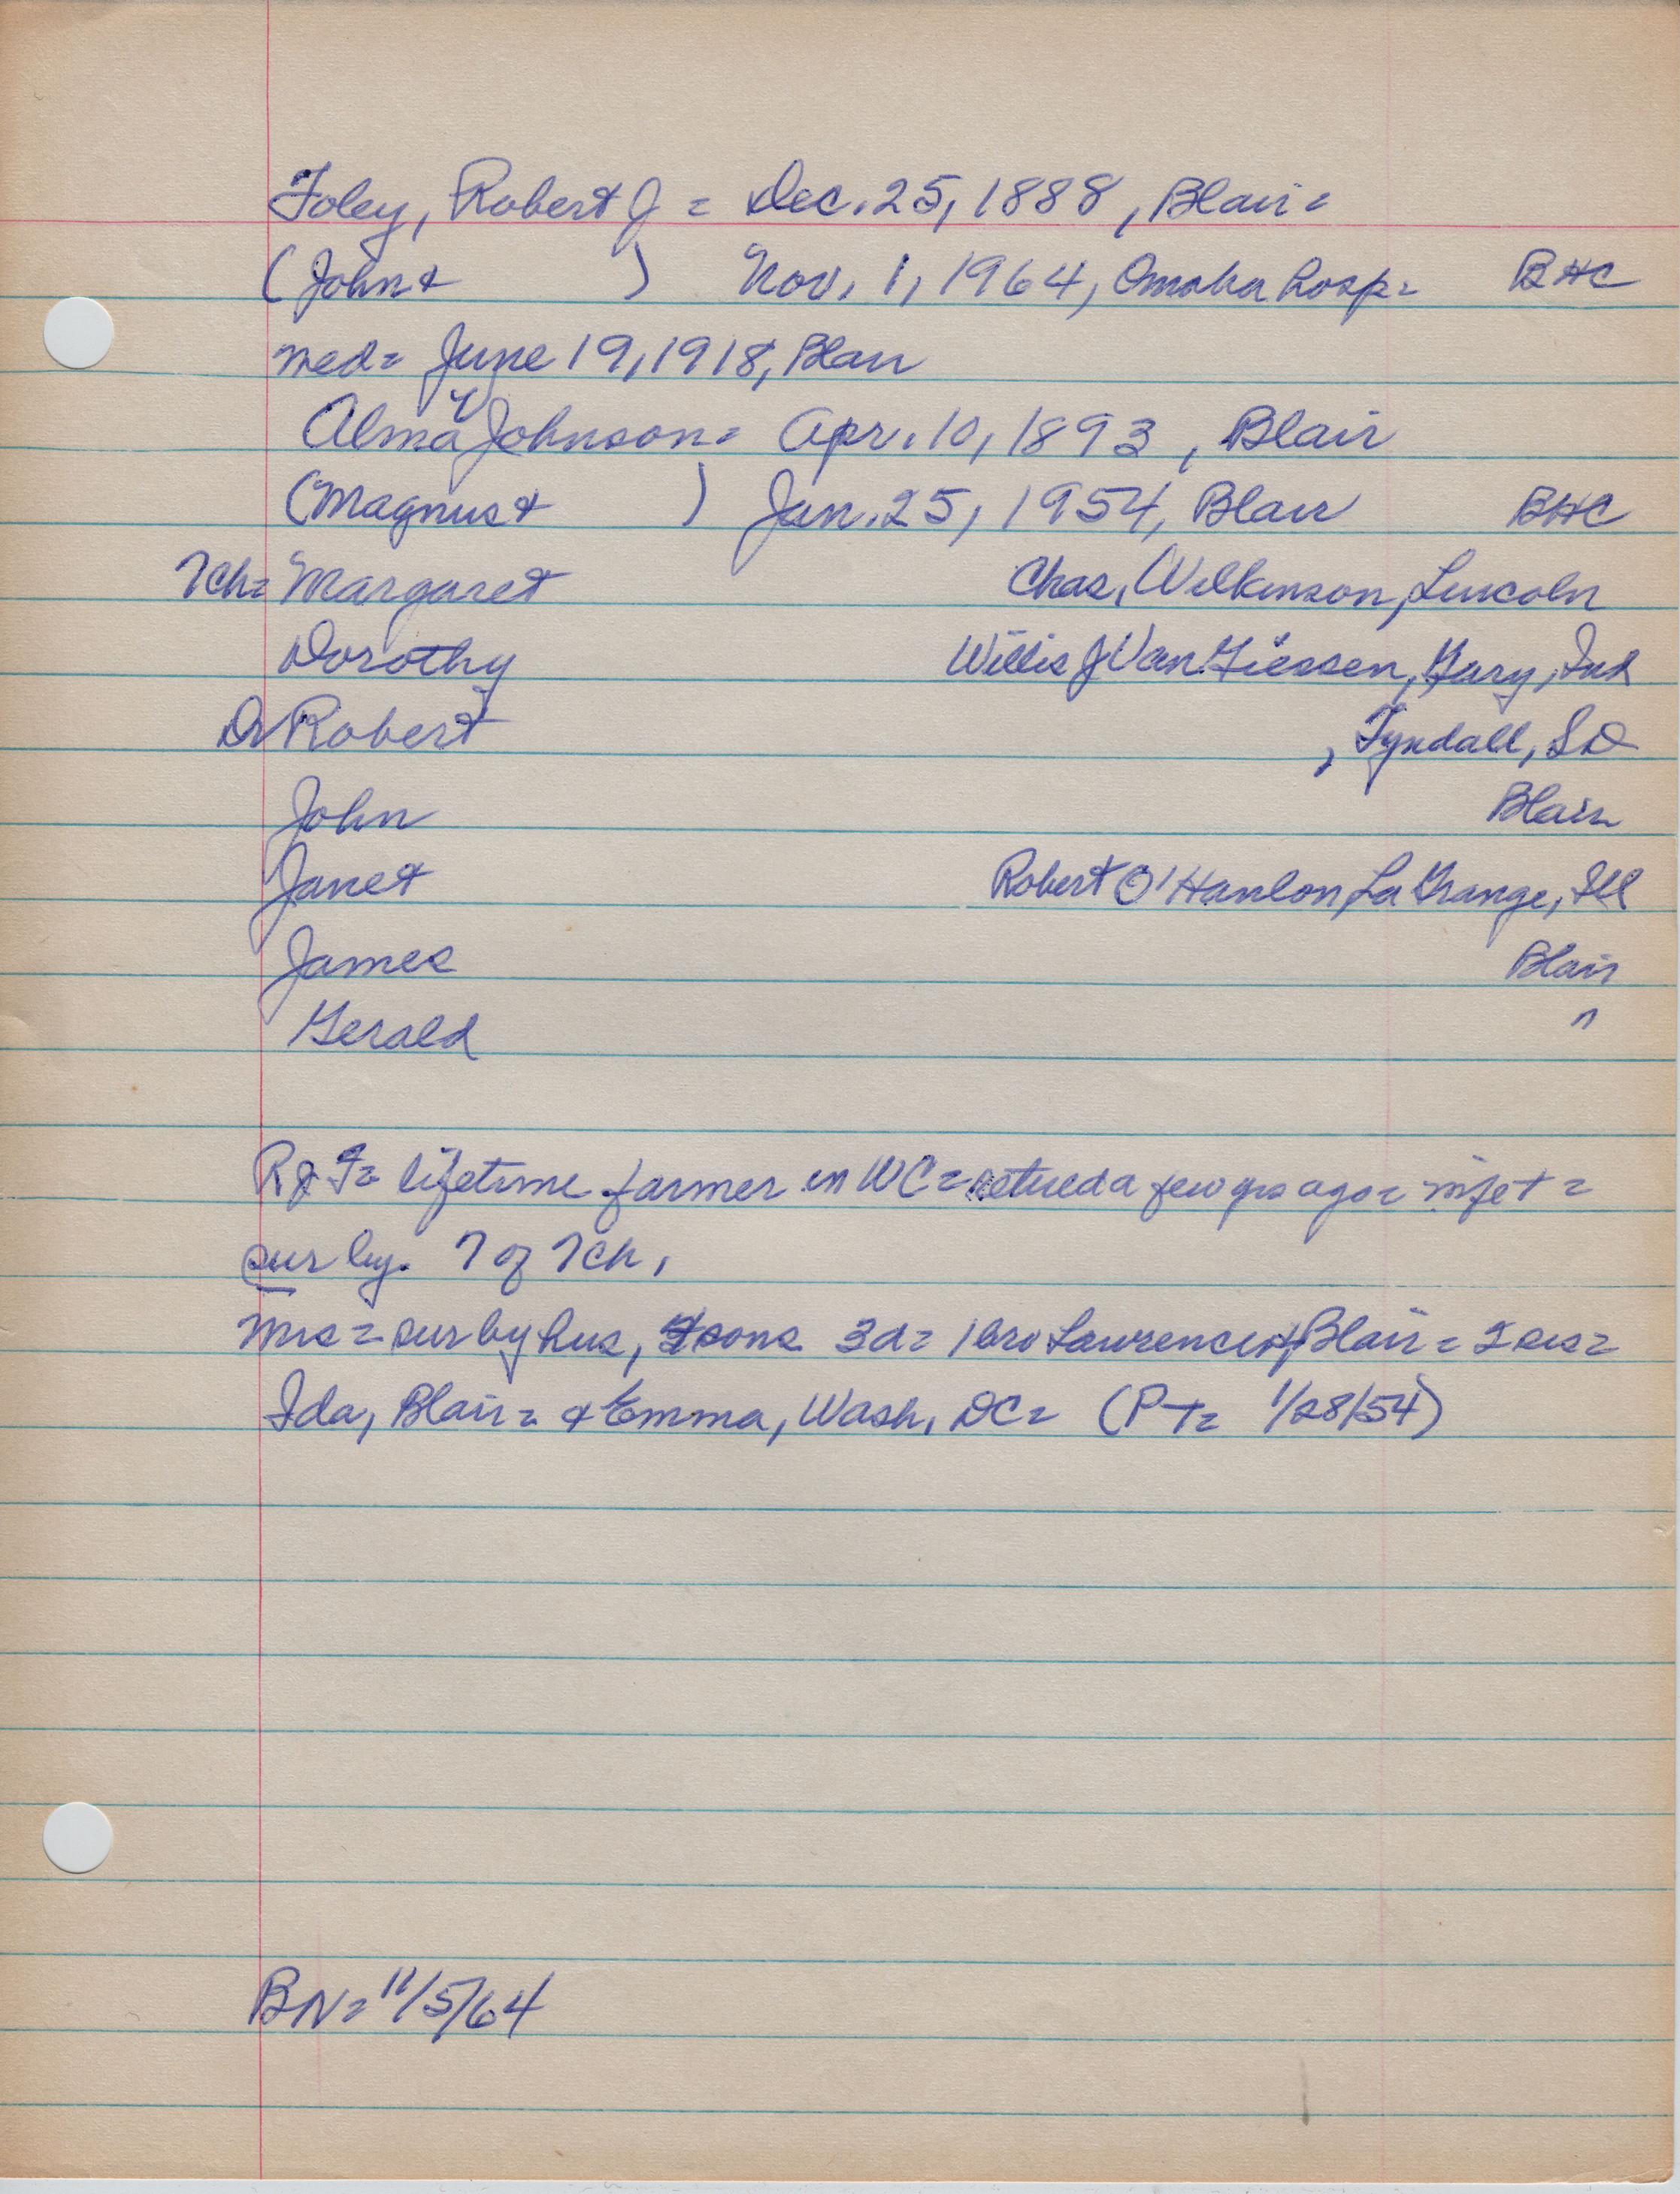 Foley, Robert J = Dec. 25, 1888, Blair =
(John & ) Nov. 1, 1964, Omaha hosp = BHC
med = June 19, 1918, Blair
Alma V Johnson = Apr. 10, 1893, Blair
(Magnus & ) Jan. 25, 1954, Blair BHC
7ch = Margaret Chas. Wilkinson, Lincoln
Dorothy Willis J Van Giessen, Gary, Ind
Dr Robert , Tyndall, SD
John Blair
Janet Robert O'Hanlon, La Grange, Ill
James Blair
Gerald "
RJF = lifetime farmer in WC = retired a few yrs ago =
sur by. 7 of 7ch,
Mrs = sur by hus, sons 3d = 1 bro Lawrence, Blair = 2 sis =
Ida, Blair = & Emma, Wash, DC = (PT = 1/28/54)
BN = 11/5/64